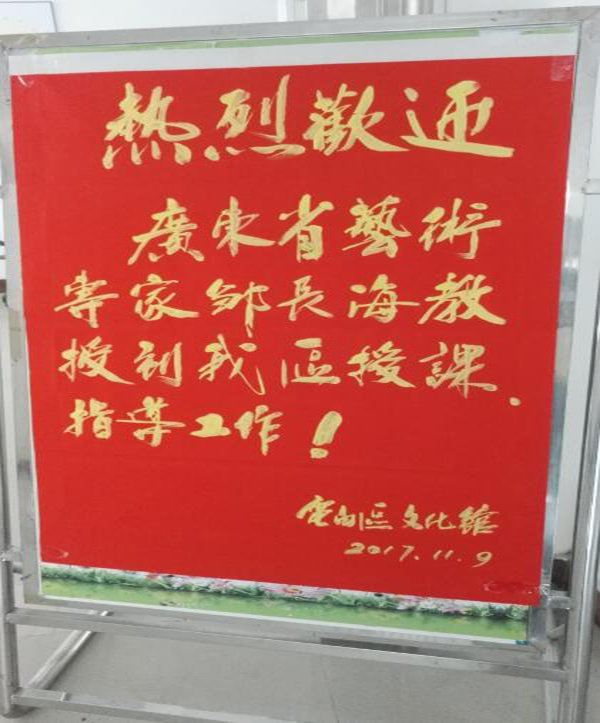 熱烈歡迎
廣東省藝術
專家鄒長海教
授到我區授課、
指導工作!
區文化館
2017.11.9